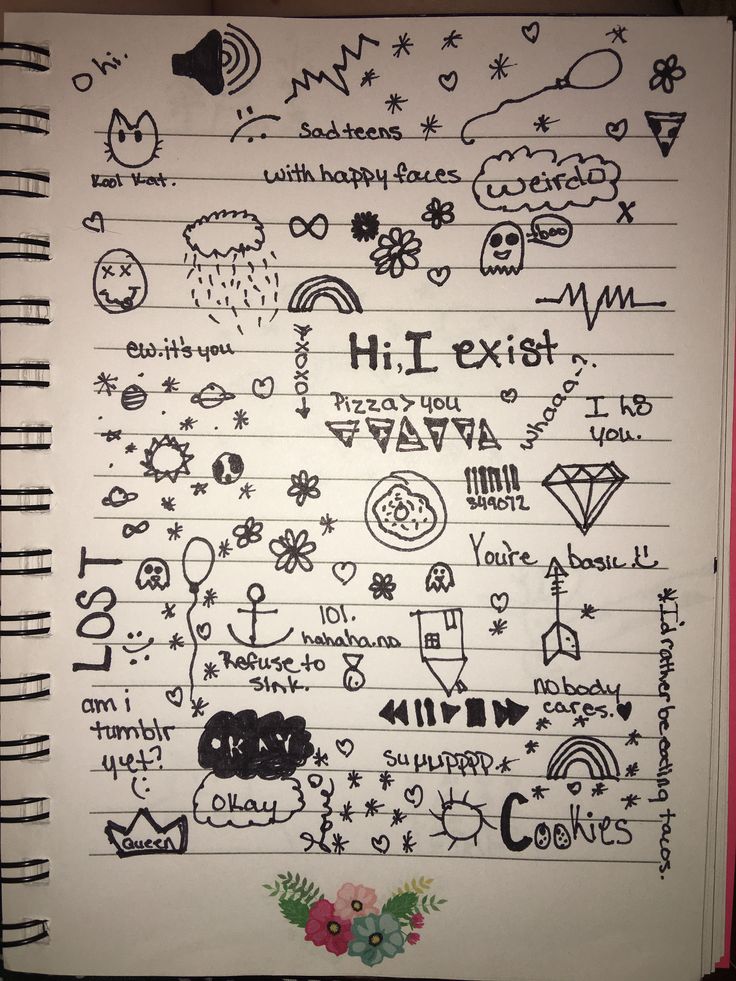 O hi.
sad teens
Kool Kat.
with happy faces
weirdo
x
boo
ew. it's you
xoxo
Hi, I exist
Pizza > you
whaaa-?
I h8
you.
349072
You're basic. :)
LOST
lol.
hahaha.no
Refuse to
sink.
*I'd rather be eating tacos.
nobody
cares.♥
am i
tumblr
yet?
:)
OKAY
suuupppp.
okay
love
Queen
Cookies